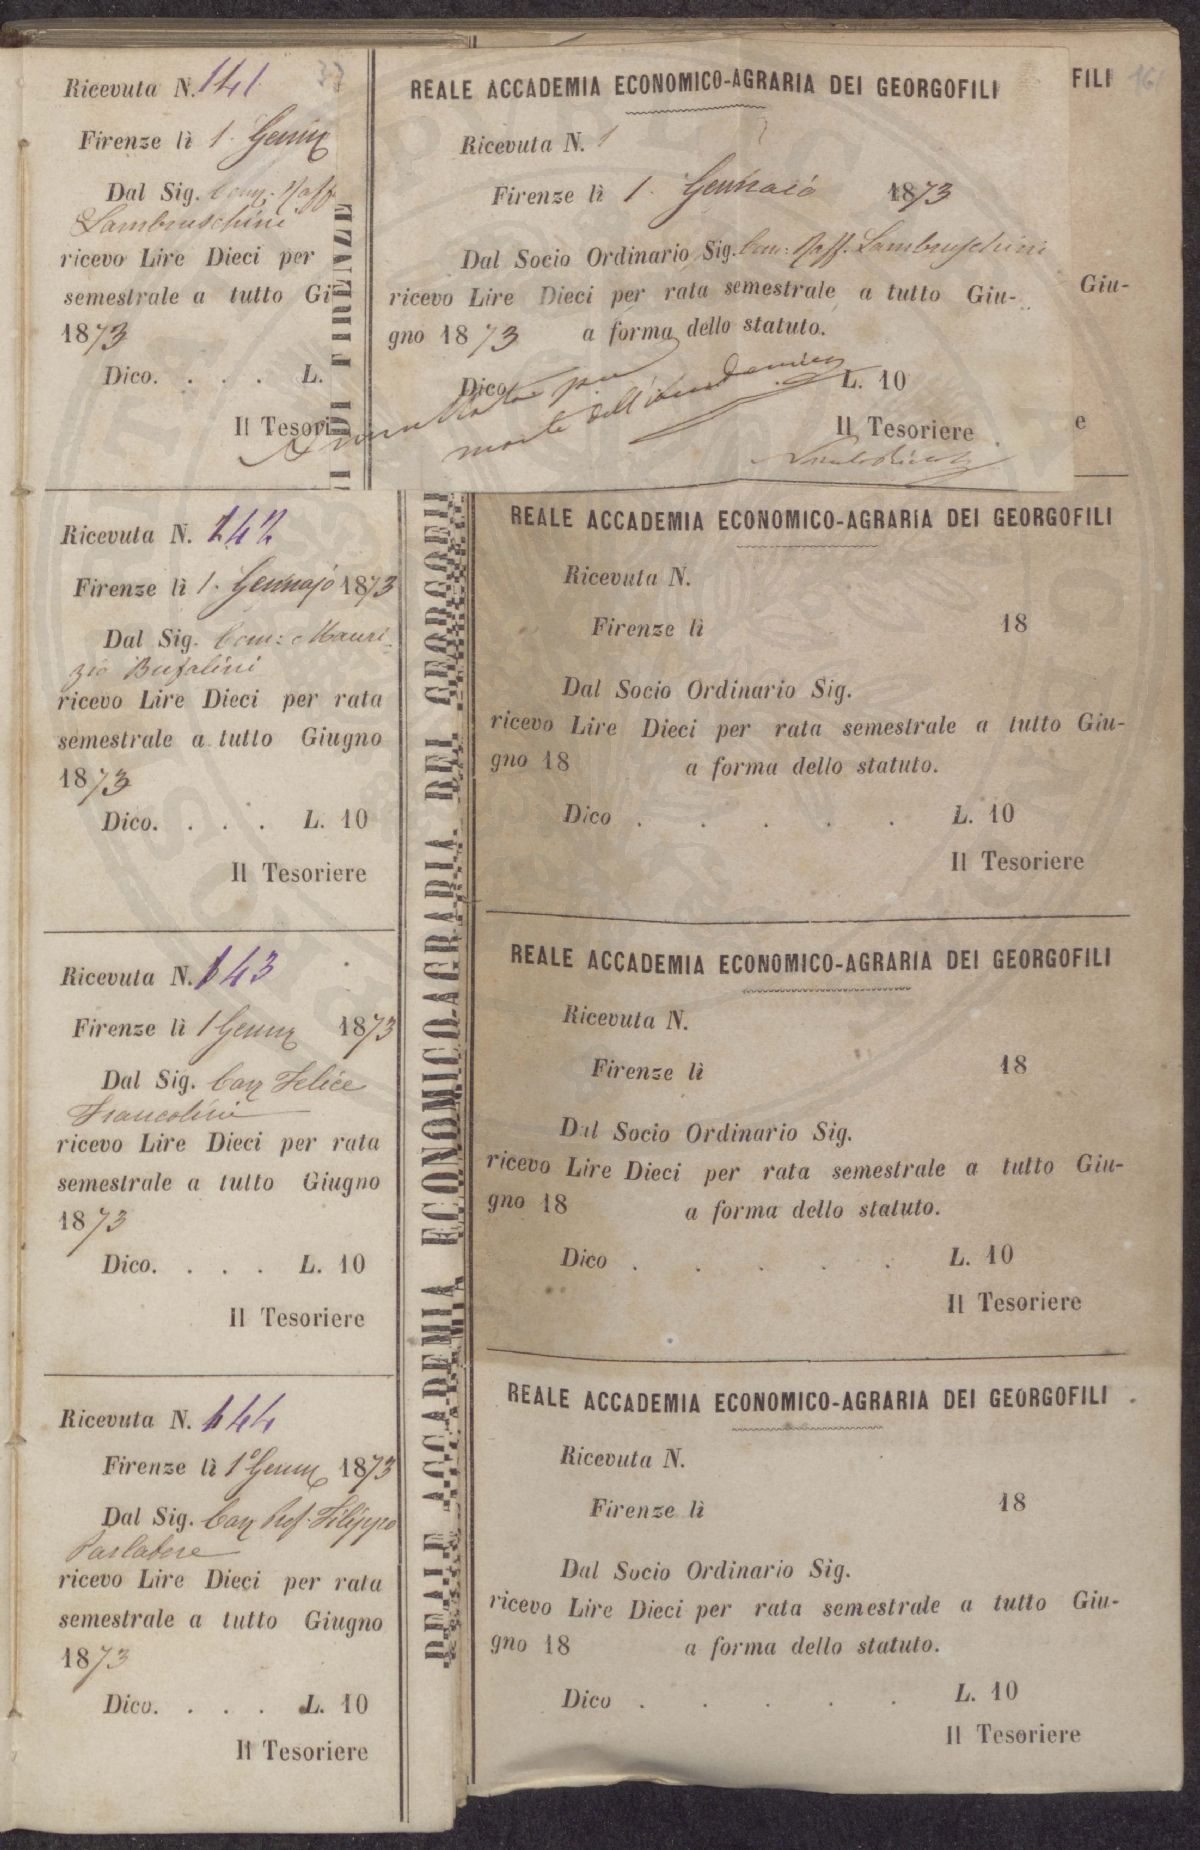 Ricevuta N. 141
Firenze lì 1. Genn
Dal Sig. Com. Raff
Lambruschini
ricevo Lire Dieci per
semestrale a tutto Gi
1873
Dico. . . . L.
Il Tesori
REALE ACCADEMIA ECONOMICO-AGRARIA DEI GEORGOFILI
Ricevuta N. 1
Firenze lì 1. Gennaio 1873
Dal Socio Ordinario Sig. Com: Raff. Lambruschini
ricevo Lire Dieci per rata semestrale a tutto Giu-
gno 1873 a forma dello statuto.
Dico L. 10
Annullata per
morte dell'
Il Tesoriere
FILI 161
Giu-
e
Ricevuta N. 142
Firenze lì 1. Gennajo 1873
Dal Sig. Com: Mauri-
zio Bufalini
ricevo Lire Dieci per rata
semestrale a tutto Giugno
1873
Dico. . . . L. 10
Il Tesoriere
REALE ACCADEMIA ECONOMICO-AGRARIA DEI GEORGOFILI
Ricevuta N.
Firenze lì 18
Dal Socio Ordinario Sig.
ricevo Lire Dieci per rata semestrale a tutto Giu-
gno 18 a forma dello statuto.
Dico . . . . . L. 10
Il Tesoriere
Ricevuta N. 143
Firenze lì 1 Genn 1873
Dal Sig. Cav Felice
Francolini
ricevo Lire Dieci per rata
semestrale a tutto Giugno
1873
Dico. . . . L. 10
Il Tesoriere
REALE ACCADEMIA ECONOMICO-AGRARIA DEI GEORGOFILI
Ricevuta N.
Firenze lì 18
Dal Socio Ordinario Sig.
ricevo Lire Dieci per rata semestrale a tutto Giu-
gno 18 a forma dello statuto.
Dico . . . . . L. 10
Il Tesoriere
Ricevuta N. 144
Firenze lì 1° Genn 1873
Dal Sig. Cav Prof. Filippo
Parlatore
ricevo Lire Dieci per rata
semestrale a tutto Giugno
1873
Dico. . . . L. 10
Il Tesoriere
REALE ACCADEMIA ECONOMICO-AGRARIA DEI GEORGOFILI
Ricevuta N.
Firenze lì 18
Dal Socio Ordinario Sig.
ricevo Lire Dieci per rata semestrale a tutto Giu-
gno 18 a forma dello statuto.
Dico . . . . . L. 10
Il Tesoriere
I DI FIRENZE
REALE ACCADEMIA ECONOMICO-AGRARIA DEI GEORGOFILI